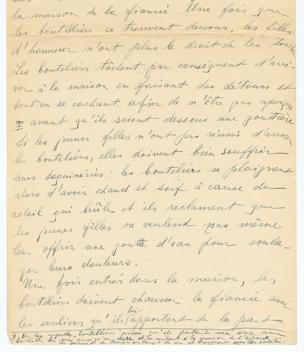 la maison de la fiancée. Une fois que
les bouteliers se trouvent dessous, les filles
d'honneur n'ont plus le droit de les
Les bouteliers tâchent par conséquent d'arri-
ver à la maison en faisant des détours et
tout en se cachant afin de n'être pas aperçus
avant qu'ils soient dessous une gouttière
Si les jeunes filles n'ont pas réussi d'arroser
les bouteliers, elles doivent bien souffrir
leurs taquineries: les bouteliers se plaignent
alors d'avoir chaud et soif à cause du
soleil qui brûle et ils réclament que
les jeunes filles ne veulent pas même
leur offrir une goutte d'eau pour soula-
ger leurs douleurs.
Une fois entrés dans la maison, les
bouteliers doivent chausser la fiancée avec
les souliers qu'ils apportent de la part